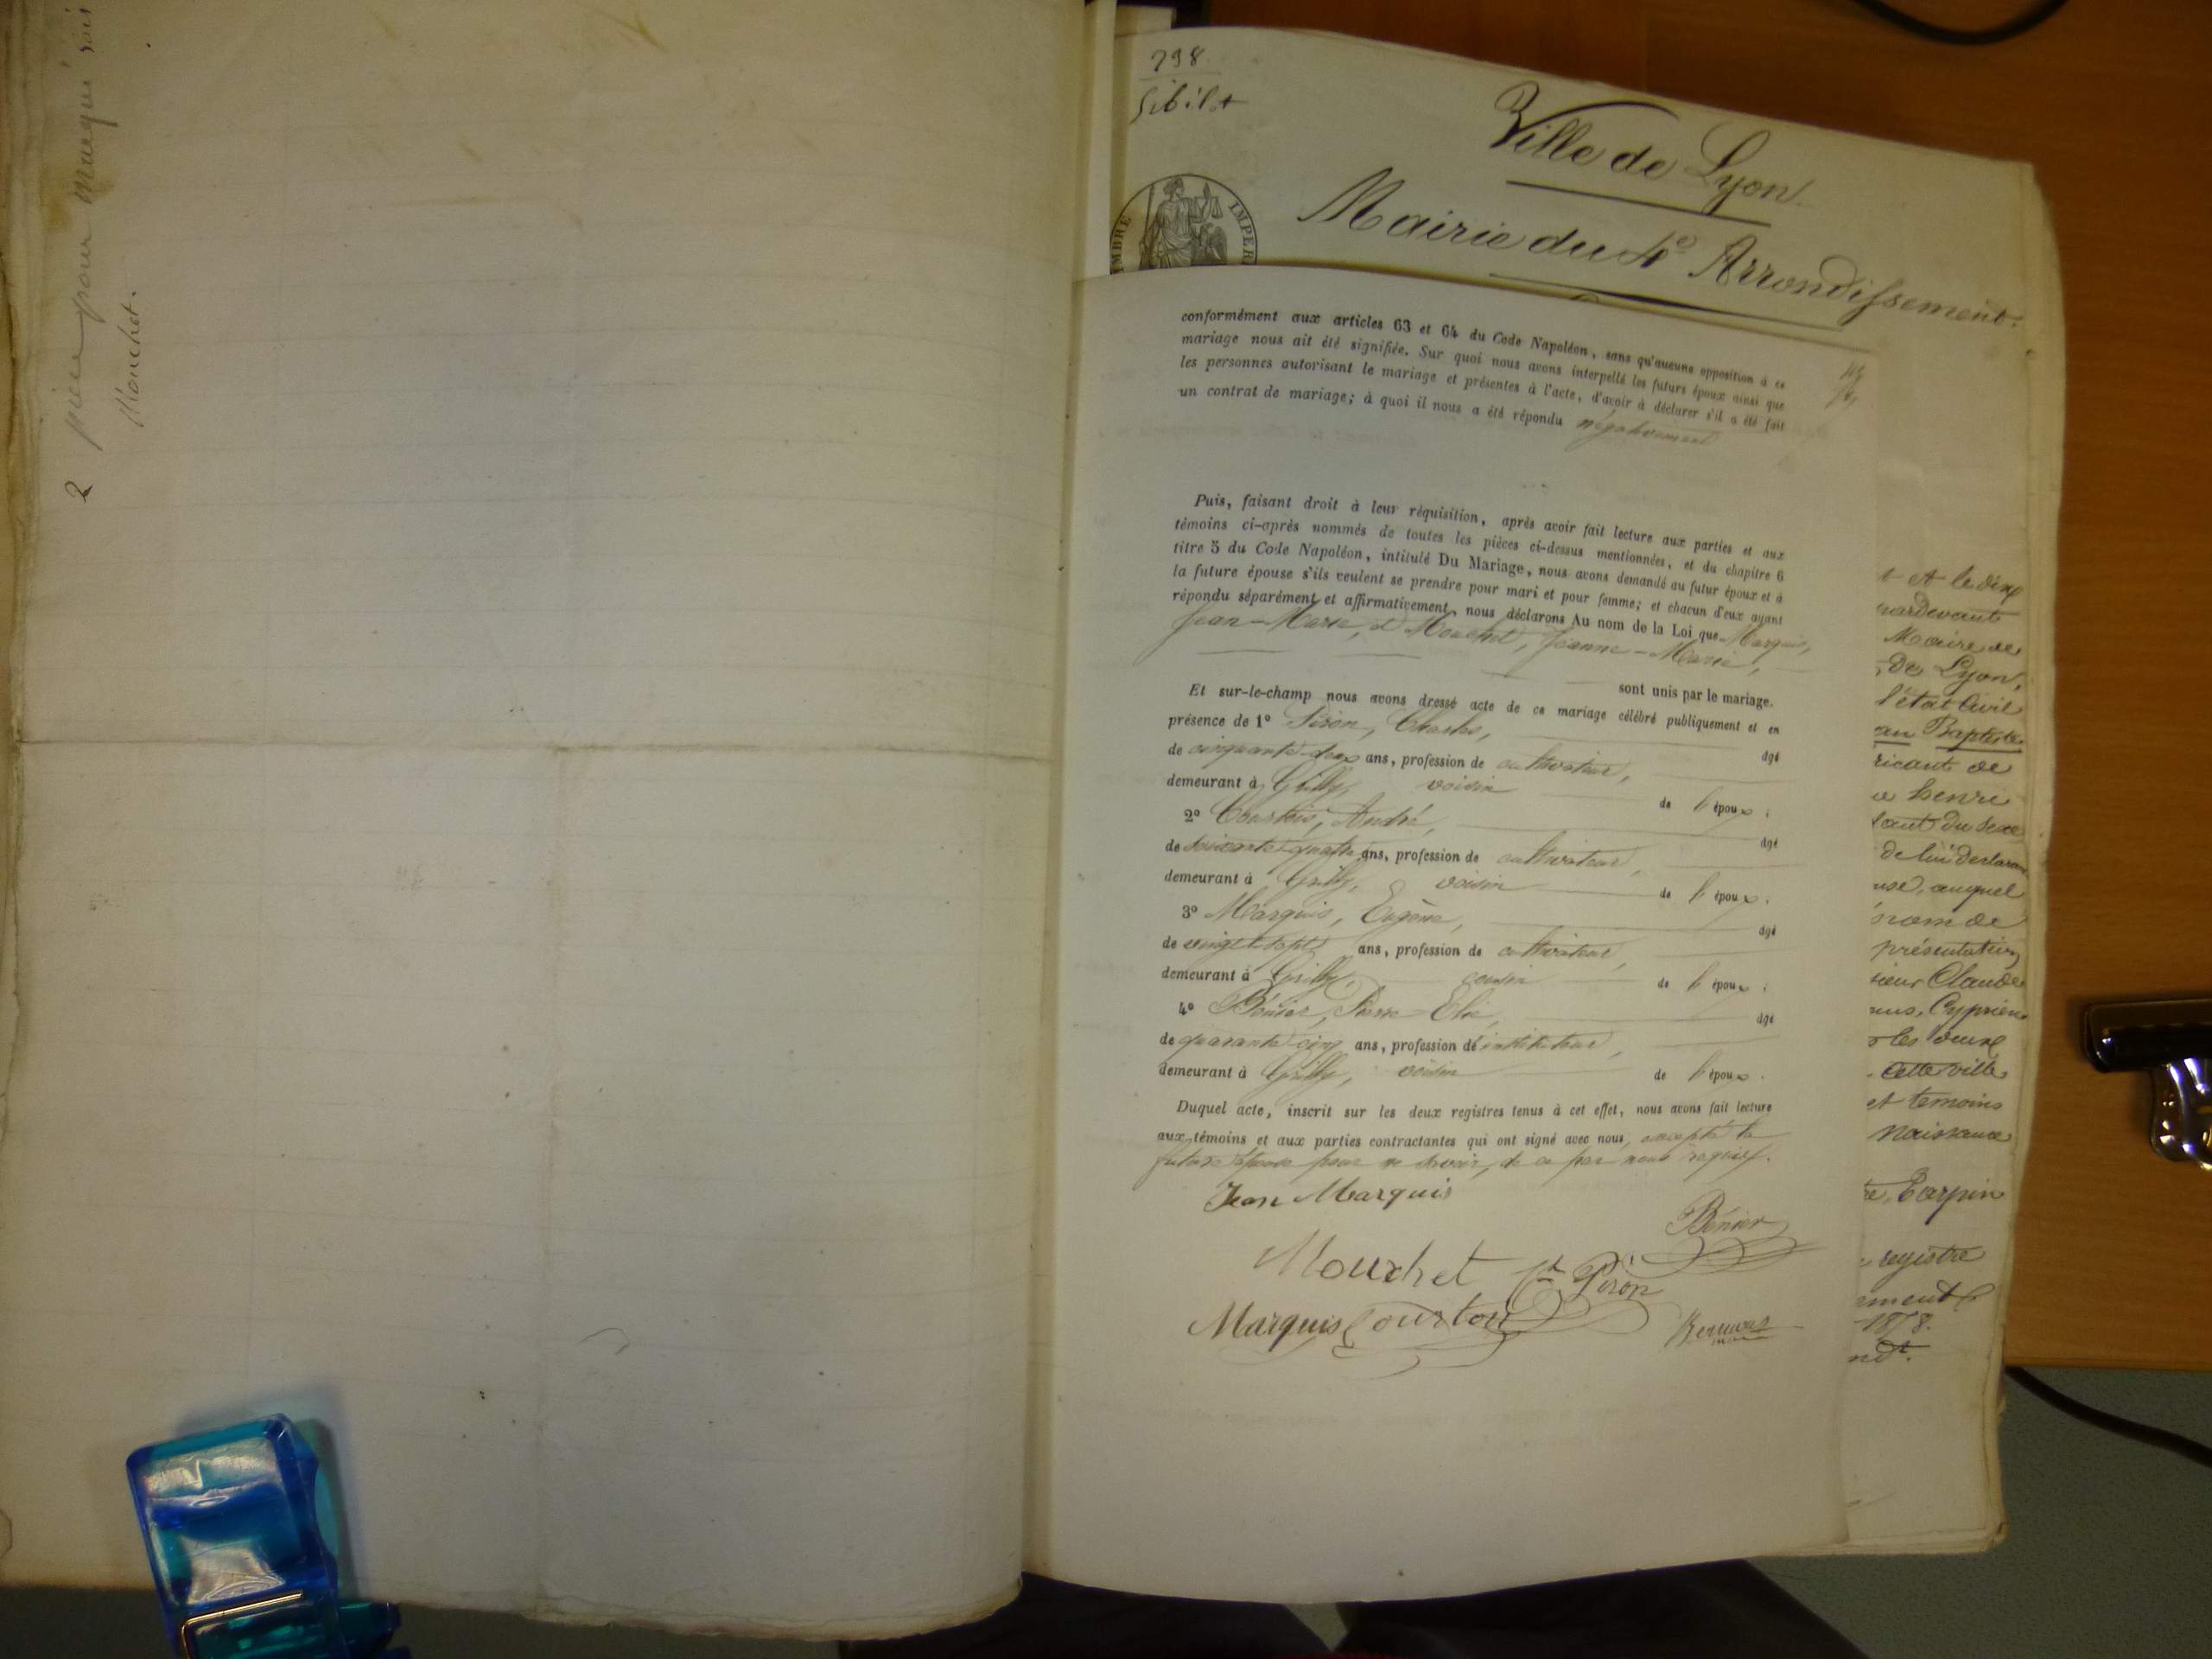 2 pièces pour Marquis soit
Mouchet.
798
Sibilat
Ville de Lyon
Mairie du 4e Arrondissement.
TIMBRE IMPER
conformément aux articles 63 et 64 du Code Napoléon, sans qu'aucune opposition à ce
mariage nous ait été signifiée. Sur quoi nous avons interpellé les futurs époux ainsi que
les personnes autorisant le mariage et présentes à l'acte, d'avoir à déclarer s'il a été fait
un contrat de mariage; à quoi il nous a été répondu négativement
Puis, faisant droit à leur réquisition, après avoir fait lecture aux parties et aux
témoins ci-après nommés de toutes les pièces ci-dessus mentionnées, et du chapitre 6
titre 5 du Code Napoléon, intitulé Du Mariage, nous avons demandé au futur époux et à
la future épouse s'ils veulent se prendre pour mari et pour femme; et chacun d'eux ayant
répondu séparément et affirmativement, nous déclarons Au nom de la Loi que Marquis,
Jean-Marie, et Mouchet, Jeanne-Marie,
sont unis par le mariage.
Et sur-le-champ nous avons dressé acte de ce mariage célébré publiquement et en
présence de 1º Piron, Charles, âgé
de cinquante-deux ans, profession de cultivateur,
demeurant à Grilly, voisin de l'époux;
2º Courtois, André, âgé
de soixante-quatre ans, profession de cultivateur,
demeurant à Grilly, voisin de l'époux;
3º Marquis, Eugène, âgé
de vingt-sept ans, profession de cultivateur,
demeurant à Grilly, cousin de l'époux;
4º Bénier, Pierre-Elie, âgé
de quarante-cinq ans, profession d'instituteur,
demeurant à Grilly, voisin de l'époux.
Duquel acte, inscrit sur les deux registres tenus à cet effet, nous avons fait lecture
aux témoins et aux parties contractantes qui ont signé avec nous, excepté la
future épouse pour ne savoir, de ce par nous requise.
Jean Marquis
Bénier
Mouchet Ch Piron
Marquis Courtois
t et le dix
pardevant
Maire de
de Lyon,
l'état Civil
an Baptiste
ricant de
henri
fant du sexe
de lui déclarant
use, auquel
nom de
présentation
sieur Claude
mus, Cyprien
cette ville
et temoins
Naissance
te, Carpin
registre
ement
1858.